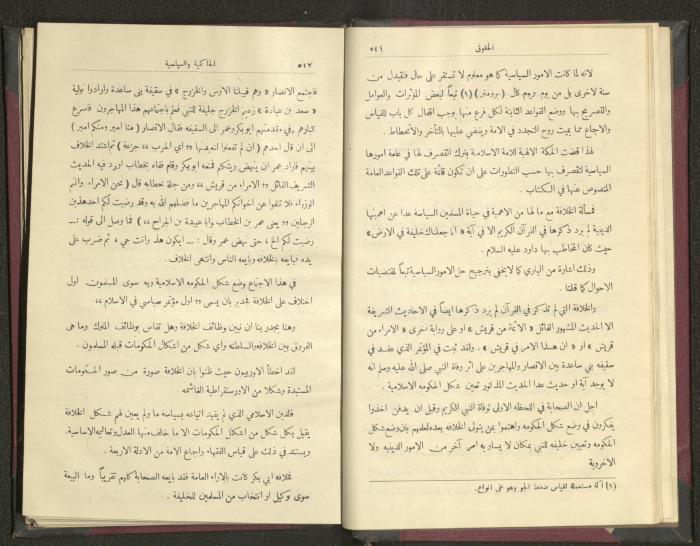 الحقوق ٥٤٦
لانه لما كانت الامور السياسية كما هو معلوم لا تستقر على حال فتتبدل من
سنة لاخرى بل من يوم ليوم كان (برومتر) (١) تبعاً لبعض المؤثرات والعوامل
والتصريح بها ووضع القواعد الثابتة لكل فرع منها يوجب اقفال كل باب للقياس
والاجماع مما يميت روح التجدد في الامة ويقضي عليها بالتأخر والانحطاط .
لهذا قضت الحكمة الالهية للامة الاسلامية بترك التصرف لها في عامة امورها
السياسية لتتصرف بها حسب التطورات على ان تكون قائمة على تلك القواعد العامة
المنصوص عنها في الكتاب .
فمسألة الخلافة مع ما لها من الاهمية في حياة المسلمين السياسة عدا عن اهميتها
الدينية لم يرد ذكرها في القرآن الكريم الا في آية « انا جعلناك خليفة في الارض »
حيث كان المخاطب بها داود عليه السلام .
وذلك اشارة من الباري كما لا يخفى بترجيح حل الامور السياسية تبعاً لمقتضيات
الاحوال كما قلنا .
والخلافة التي لم تذكر في القرآن لم يرد ذكرها ايضاً في الاحاديث الشريفة
الا الحديث المشهور القائل « الائمة من قريش » او على رواية اخرى « الامراء من
قريش » او « ان هذا الامر في قريش » . ولقد ثبت في المؤتمر الذي عقد في
سقيفة بني ساعدة بين الانصار والمهاجرين على اثر وفاة النبي صلى الله عليه وسلم انه
لا يوجد آية او حديث عدا الحديث المذكور تعين شكل الحكومة الاسلامية .
اجل ان الصحابة في اللحظه الاولى لوفاة النبي الكريم وقبل ان يدفن اخذوا
يفكرون في وضع شكل الحكومه واهتموا بمن يتولى الخلافه بعده لعلمهم بان وضع شكل
الحكومه وتعيين خليفه للنبي بمكان لا يساويه امر آخر من الامور الدينيه ولا
الاخروية
(١) آلة مستعملة لقياس ضغط الجو وهو على انواع .
الحاكمية والسياسية ٥٤٧
فاجتمع الانصار « وهم قبيلتا الاوس والخزرج » في سقيفة بني ساعدة وارادوا تولية
« سعد بن عبادة » زعيم الخزرج خليفة للنبي فعلم باجتماعهم هذا المهاجرون فاسرع
كبارهم وفي مقدمتهم ابوبكر وعمر الى السقيفه فقال الانصار ( منا امير ومنكم امير )
الى ان قال احدهم ( ان لم تفعلوا انعيدنها « اي الحرب » جزعة ) ثم اشتد الخلاف
بينهم فاراد عمر ان ينهض ويتكلم فمنعه ابوبكر وقام فقاه بخطاب اورد فيه الحديث
الشريف القائل « الامراء من قريش » ومن جملة خطابه قال ( نحن الامراء وانتم
الوزراء فلا تنفوا عن اخوانكم المهاجرين ما فضلهم الله به وقد رضيت لكم احد هذين
الرجلين « يعني عمر بن الخطاب وابا عبيدة بن الجراح » ) فما وصل الى قوله :ـــ
رضيت لكم الخ ، حتى نهض عمر وقال : ـــ ايكون هذا وانت حي ، ثم ضرب على
يده فبايعه بالخلافه وبايعه الناس وانتهى الخلاف .
في هذا الاجتماع وضع شكل الحكومه الاسلامية وبه سوى المسلمون اول
اختلاف على الخلافة فجدير بان يسمى « اول مؤتمر سياسي في الاسلام »
وهنا يجدر بنا ان نبين وظائف الخلافة وهل تقاس بوظائف الملوك وما هى
الفروق بين الخلافه والسلطنه واي شكل من اشكال الحكومات قبله المسلمون .
لقد اخطأ الاوربيون حيث ظنوا بان الخلافة صورة من صور الحكومات
المستبدة وشكلا من الاورستقراطية القائمه
فالدين الاسلامي الذي لم يقيد اتباعه بسياسه ما ولم يعين لهم شكل الخلافة
يقبل بكل شكل من اشكال الحكومات الا ما خالف منها العدل وتعاليمه الاساسية .
ويستند في ذلك على قياس الفقهاء واجماع الامة من الادلة الاربعة .
فخلافه ابي بكر كانت بالاراء العامة فقد بايعه الصحابة كلهم تقريباً وما البيعة
سوى توكيل او انتخاب من المسلمين للخليفة .